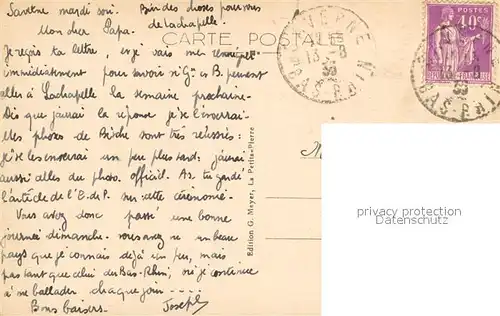 Saverne mardi soir. Bien des choses pour vous
de Lachapelle.
Mon cher Papa.
CARTE POSTALE
POSTES
40c
Je reçois ta lettre, et je vais me renseigner
immédiatement pour savoir si G et B. peuvent
aller à Lachapelle la semaine prochaine.
Dis que j'aurai la réponse je te l'enverrai.
Mes photos de Bitche sont très réussies:
je te les enverrai un peu plus tard: j'aurai
aussi celles du photo. officiel. As-tu gardé
l'article de l'E. du P. sur cette cérémonie.
Vous avez donc passé une bonne
journée dimanche. vous avez vu un beau
pays que je connais déjà un peu, mais
pas tant que celui du Bas-Rhin, où je continue
à me ballader chaque jour ----
Bons baisers. Joseph
Edition G. Meyer, La Petite-Pierre
BAS-RHIN
privacy protection
Datenschutz